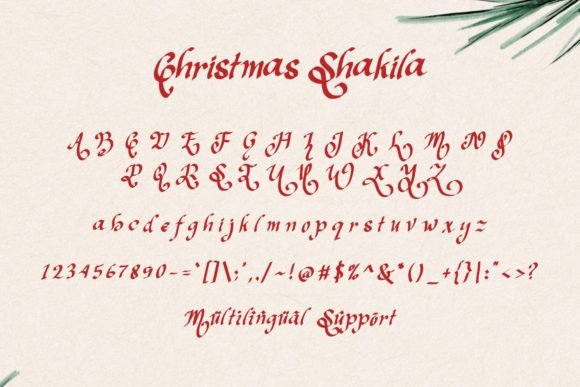 Christmas Shakila
A B C D E F G H I J K L M N O
P Q R S T U V W X Y Z
a b c d e f g h i j k l m n o p q r s t u v w x y z
1234567890-=`[]\;',./~!@#$%^&*()_+{}|:"<>?
Mültilingüäl Süppört